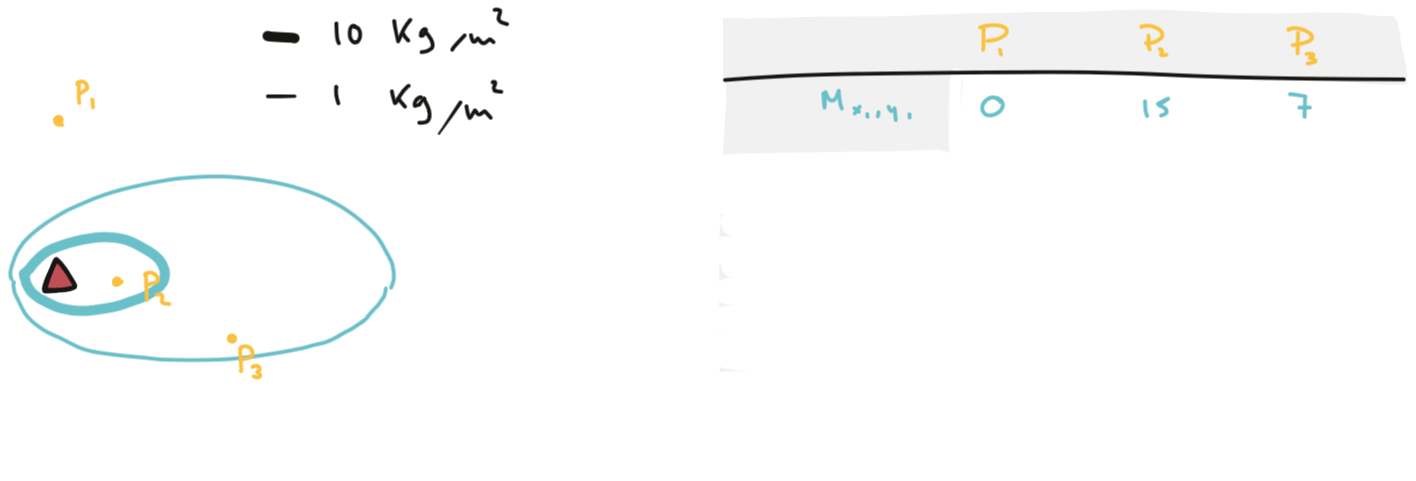 10 Kg/m²
1 Kg/m²
P₁
P₂
P₃
P₁ P₂ P₃
Mₓᵢ,ᵧᵢ 0 15 7